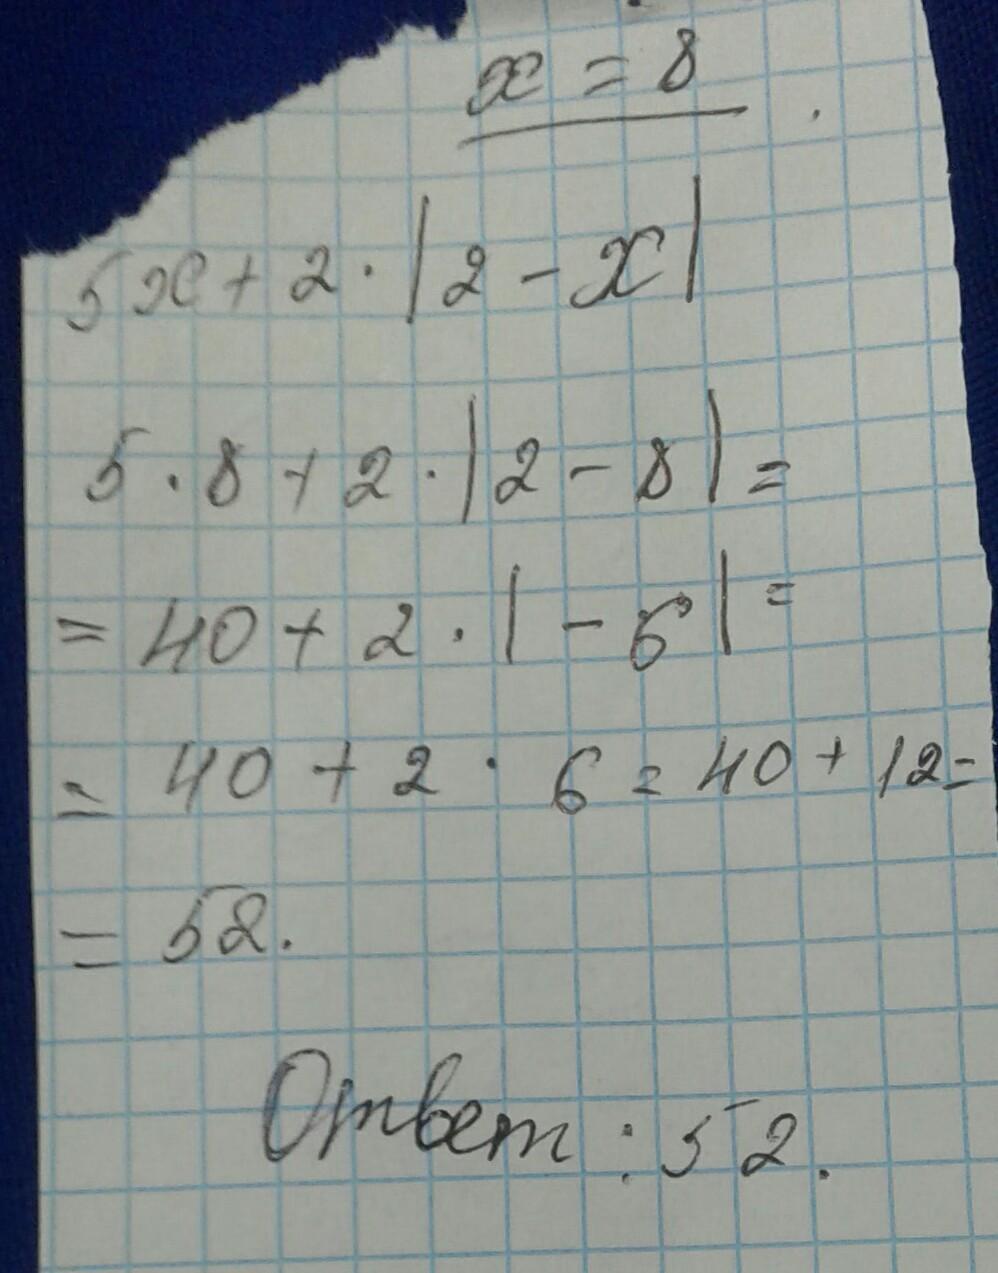 x = 8
5x + 2 · |2 - x|
5 · 8 + 2 · |2 - 8| =
= 40 + 2 · |- 6| =
= 40 + 2 · 6 = 40 + 12 =
= 52.
Ответ : 52.